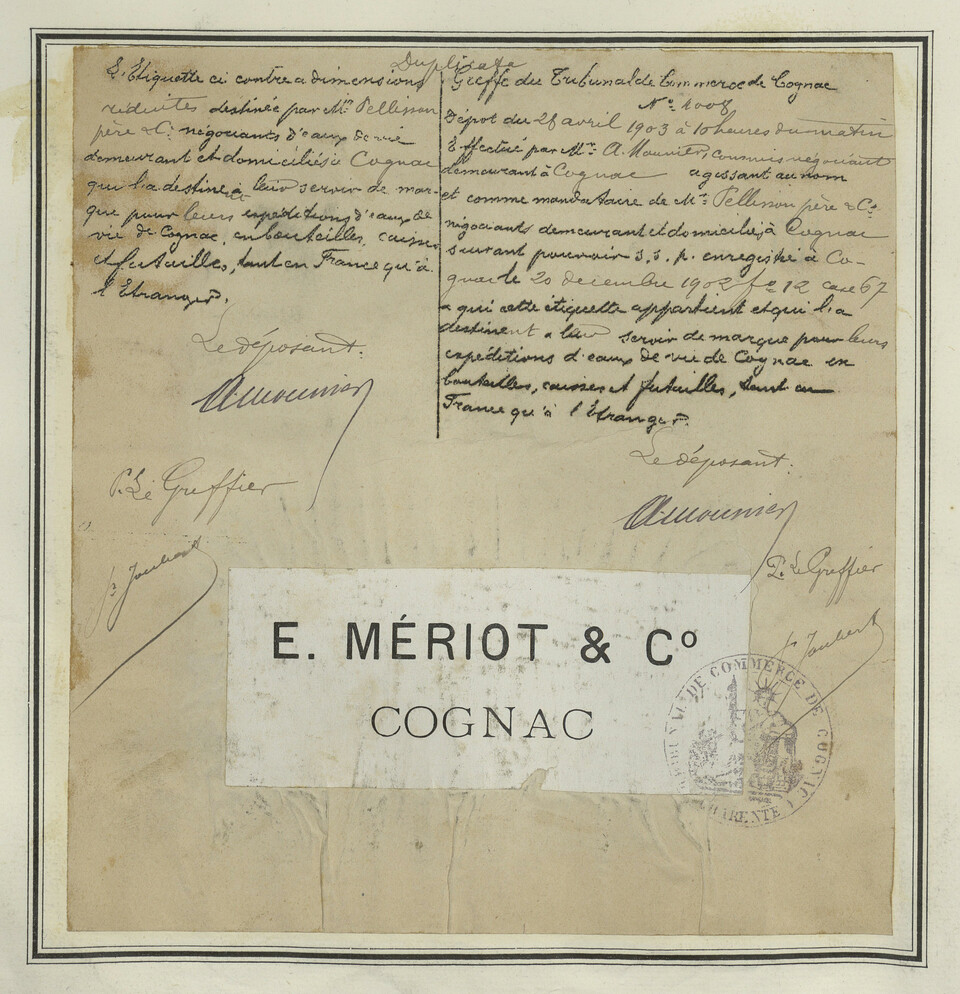 Duplicata
L'Etiquette ci contre a dimensions
réduites destinée par Mrs Pellisson
père & Cie négociants d'eaux de vie
demeurant et domiciliés à Cognac
qui l'a destinent à leur servir de mar-
que pour leurs expéditions d'eaux de
vie de Cognac, en bouteilles, caisses
et futailles, tant en France qu'à
l'Etranger.
Le déposant:
A. Mounier
P. Le Greffier
Joubert
Greffe du Tribunal de Commerce de Cognac
No 1008
Dépot du 28 avril 1903 à 10 heures du matin
Effectué par Mr. A. Mounier, commis négociant
demeurant à Cognac agissant au nom
et comme mandataire de Mrs Pellisson père & Co
négociants demeurant et domiciliés à Cognac
suivant pouvoir s. s. p. enregistré à Co-
gnac le 20 décembre 1902 fo 12 case 67
a qui cette étiquette appartient et qui l'a
destinent a leur servir de marque pour leurs
expéditions d'eaux de vie de Cognac en
bouteilles, caisses et futailles, tant en
France qu'à l'Étranger.
Le déposant:
A. Mounier
P. Le Greffier
Joubert
E. MÉRIOT & Co
COGNAC
TRIBUNAL DE COMMERCE DE COGNAC
CHARENTE